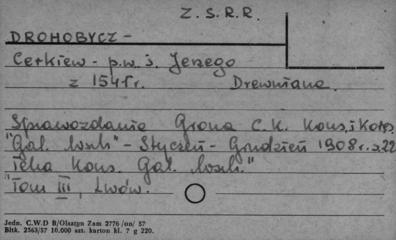 Z.S.R.R.
DROHOBYCZ -
Cerkiew - p.w. ś. Jerzego
z 1541r. Drewniana.
Sprawozdanie Grona C.K. Kons. i Kores.
"Gal. Wsch" - Styczeń - Grudzień 1908 r. s 22
Teka Kons. Gal. Wsch."
Tom III, Lwów.
Jedn. C.W.D B/Olsztyn Zam 2776/on/ 57
Bltk. 2563/57 10.000 szt. karton kl. 7 g 220.